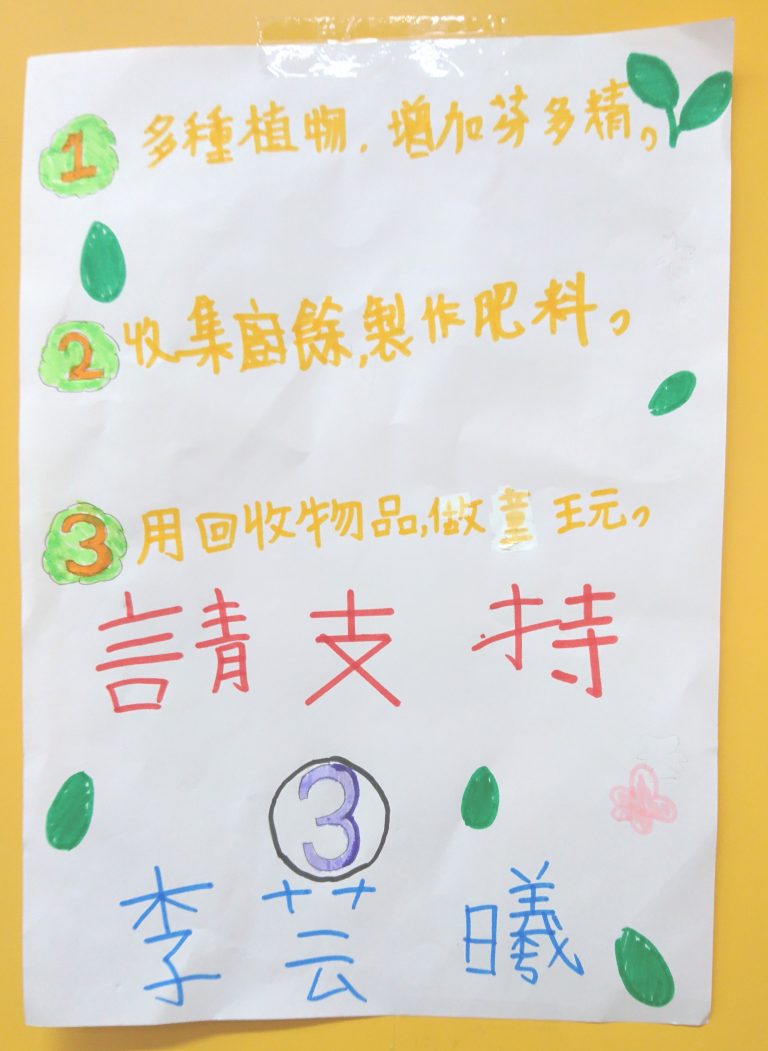 1 多種植物，增加芬多精。
2 收集廚餘，製作肥料。
3 用回收物品，做童玩。
請支持
3
李芸曦